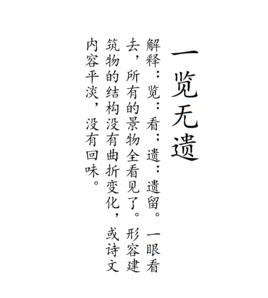 一览无遗
解释：览：看；遗：遗留。一眼看
去，所有的景物全看见了。形容建
筑物的结构没有曲折变化，或诗文
内容平淡，没有回味。